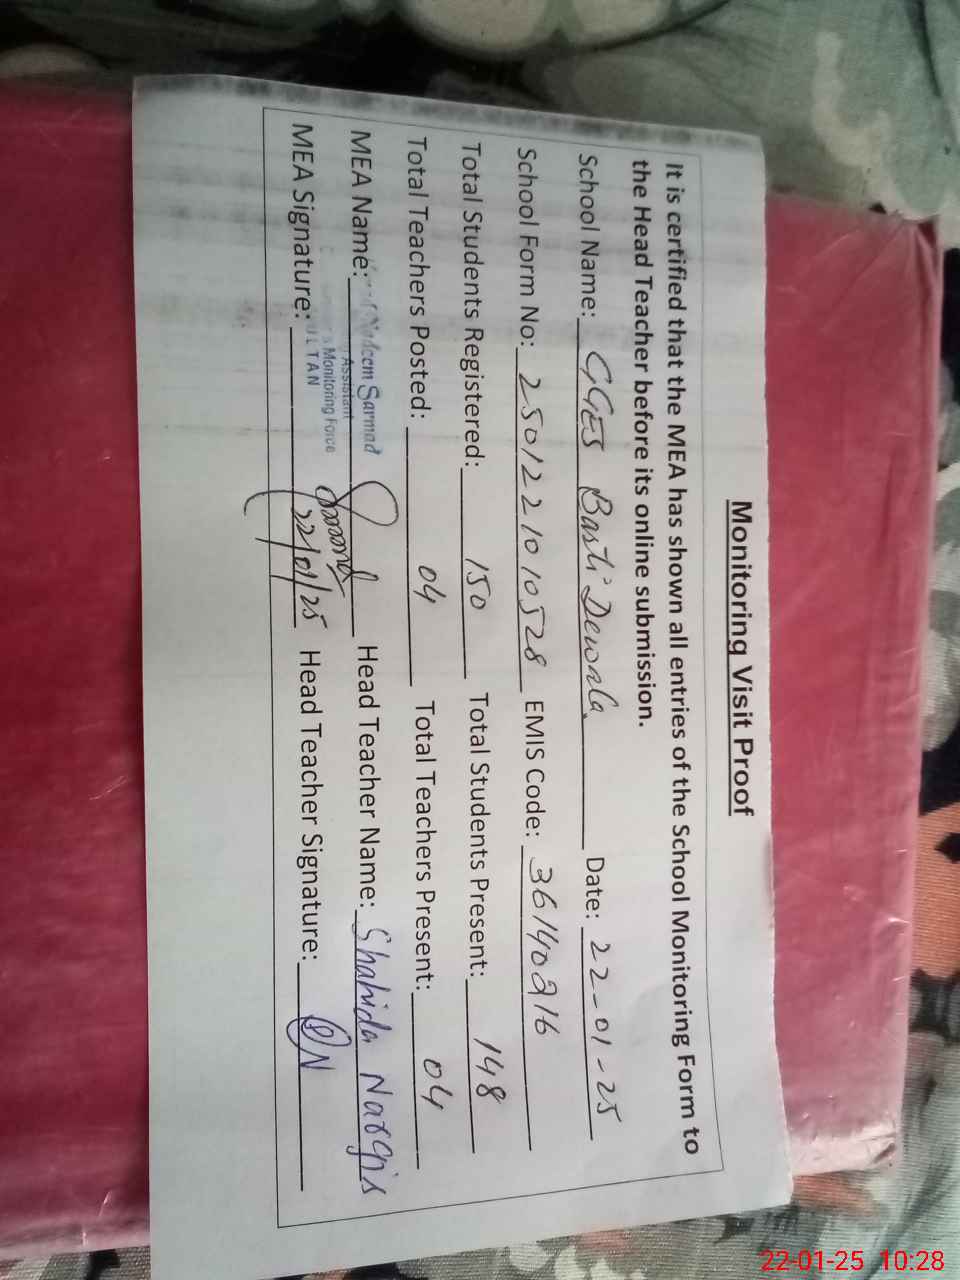 Monitoring Visit Proof
It is certified that the MEA has shown all entries of the School Monitoring Form to
the Head Teacher before its online submission.
School Name: GGES Basti Dewala Date: 22-01-25
School Form No: 2501221010528 EMIS Code: 36140216
Total Students Registered: 150 Total Students Present: 148
Total Teachers Posted: 04 Total Teachers Present: 04
MEA Name: Nadeem Sarmad Head Teacher Name: Shahida Nargis
Assistant
Monitoring Force
MULTAN
MEA Signature: 22/01/25 Head Teacher Signature: SN
22-01-25 10:28